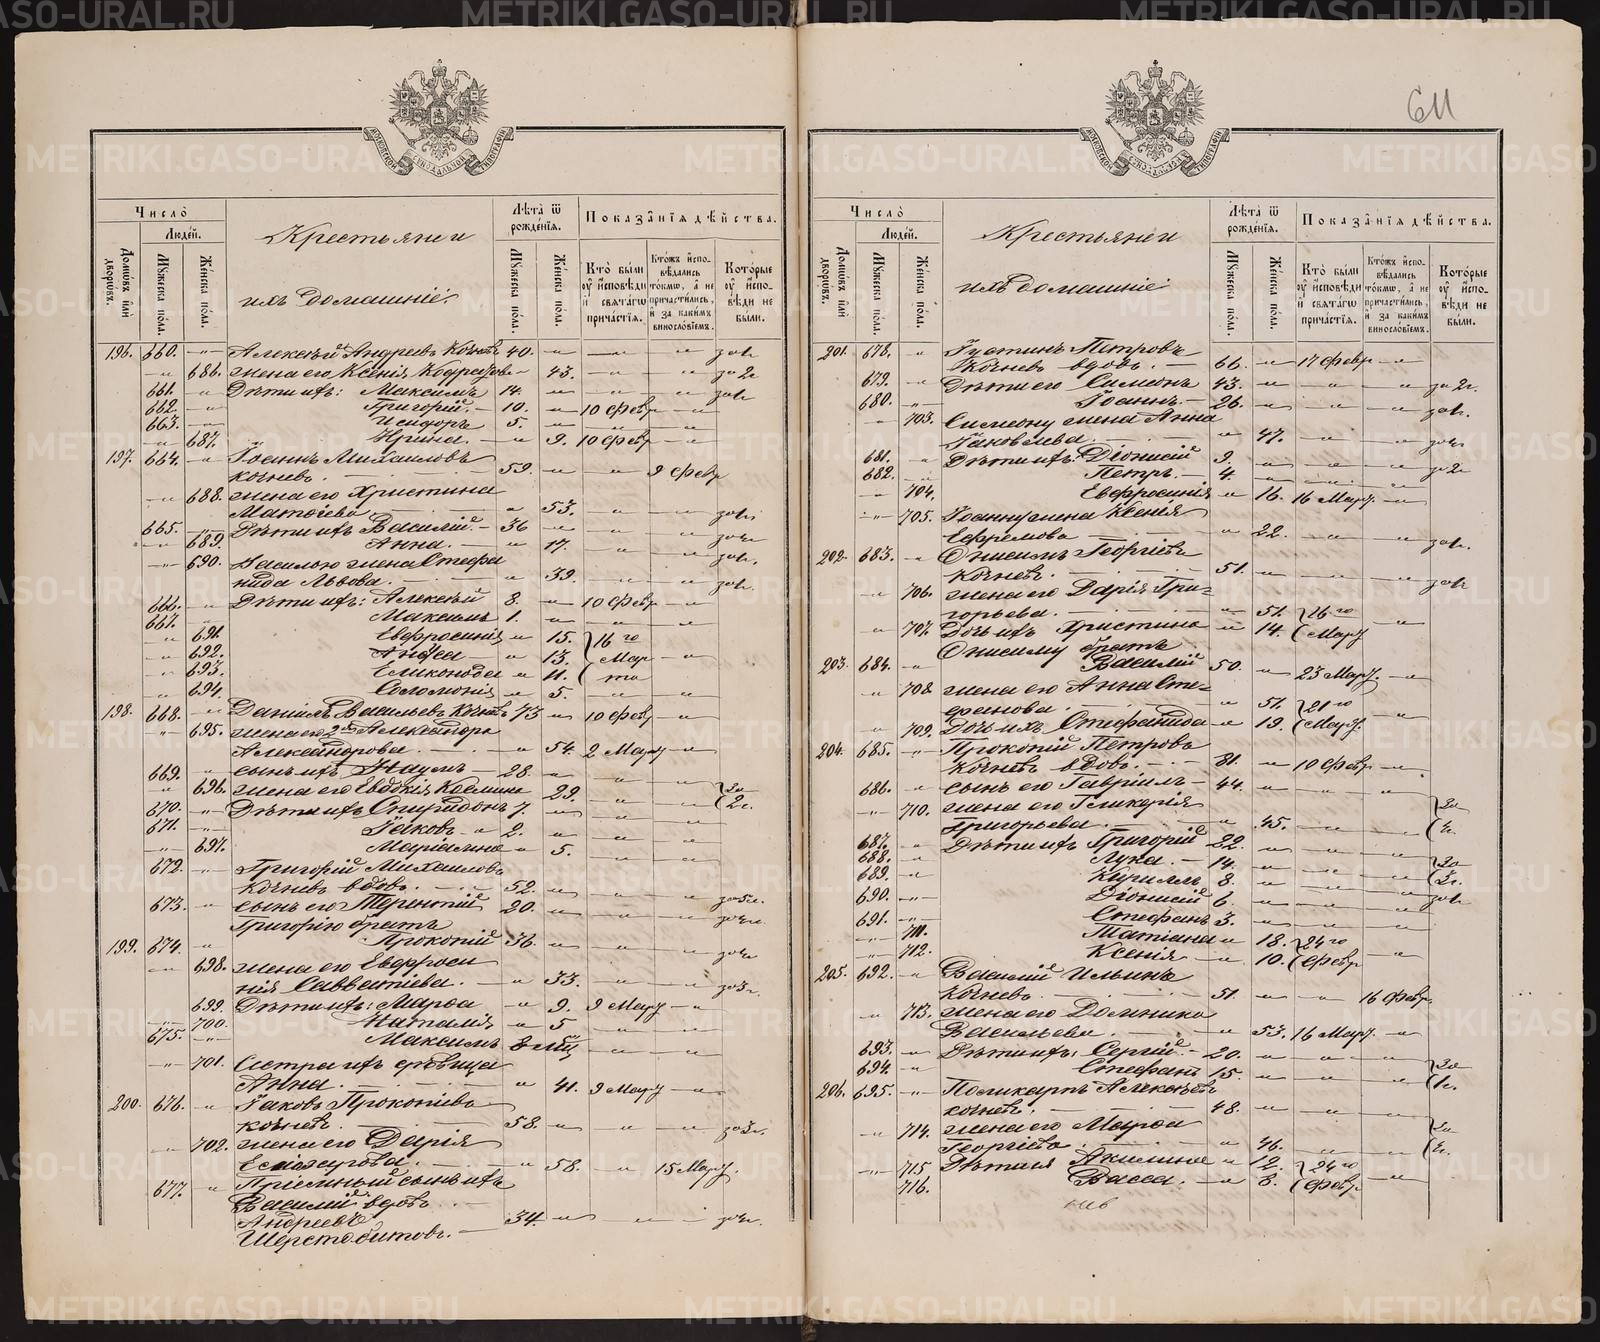 METRIKI.GASO-URAL.RU
611
Число̀
Людей.
Домѡвъ или дворѡвъ.
Мꙋжеска пола.
Женска пола.
Крестьяне и
ихъ домашніе.
Лѣта ѿ рожденія.
Мꙋжеска пола.
Женска пола.
Показанія дѣйства.
Кто были ꙋ исповѣди и свѧтагѡ причастія.
Ктожъ исповѣдались токмѡ, а не причастились, и за какимъ винословіемъ.
Которые ꙋ исповѣди не были.
196. 660. Алексѣй Андреевъ Кочневъ 40.
686. жена его Ксенія 43. за 2 г.
661. Дѣти ихъ: Максимъ 14.
662. Григорій. 10. 10 февр
663. Исидоръ 5.
687. Ирина. 9. 10 февр
197. 664. Іоаннъ Михаиловъ
Кочневъ. 59. 9 февр
688. жена его Христина
53.
665. Дѣти ихъ Василій 36
689. Анна. 17.
690. Василію жена Стефа
нида Львова. 39.
666. Дѣти ихъ: Алексѣй 8. 10 февр
667. Максимъ 1.
691. Евфросинія 15. 16 го
692. 13. Мар
693. 11. та
694. Соломонія 5.
198. 668. Даніилъ Васильевъ Кочневъ 73 10 февр
695. жена его 2я Александра
Александрова. 54. 2 Март
669. сынъ ихъ Наумъ 28.
696. жена его Евдокія 29. за
670. Дѣти ихъ Спиридонъ 7. 2 г.
671. Іаковъ 2.
697. Маріамна 5.
672. Григорій Михаиловъ
Кочневъ вдовъ. 52.
673. сынъ его Терентій 20.
Григорію братъ
199. 674. Прокопій 36.
698. жена его Евфроси
нія Савватіева. 33. за 3 г.
699. Дѣти ихъ: Марѳа 9. 9 Март
700. Наталія 5
675. Максимъ 8 мц
701. Сестра ихъ дѣвица
Анна. 41. 9 Март
200. 676. Іаковъ Прокопіевъ
Кочневъ. 58. за 3 г.
702. жена его Дарія
58. 15 Март.
677. Пріемный сынъ ихъ
Василій вдовъ
Андреевъ 34.
Шерстобитовъ.
Число̀
Людей.
Домѡвъ или дворѡвъ.
Мꙋжеска пола.
Женска пола.
Крестьяне и
ихъ домашніе
Лѣта ѿ рожденія.
Мꙋжеска пола.
Женска пола.
Показанія дѣйства.
Кто были ꙋ исповѣди и свѧтагѡ причастія.
Ктожъ исповѣдались токмѡ, а не причастились, и за какимъ винословіемъ.
Которые ꙋ исповѣди не были.
201. 678. Іустинъ Петровъ
Кочневъ вдовъ. 66. 17 февр
679. Дѣти его Симеонъ 43. за 2 г.
680. Іоаннъ. 26.
703. Симеону жена Анна
Іаковлева. 47.
681. Дѣти ихъ: Діонисій 9. за 2 г
682. Петръ. 4.
704. Евфросинія 16. 16 Март.
705. Іоанну жена Ксенія
Ефремова 22.
202. 683. Онисимъ Георгіевъ
Кочневъ. 51.
706. жена его Дарія Гри-
горьева. 51. 16 го
707. Дочь ихъ Христина 14. Март
Онисиму братъ
203. 684. Василій 50. 23 Март.
708. жена его Анна Сте-
фанова. 51. 21 го
709. Дочь ихъ Стефанида 19. Март.
204. 685. Прокопій Петровъ
Кочневъ вдовъ. 81. 10 февр
686. сынъ его Гавріилъ 44.
710. жена его Гликерія за
Григорьева. 45.
687. Дѣти ихъ Григорій 22.
688. Лука. 14. за
689. Кириллъ 8. 2 г.
690. Діонисій 6.
691. Стефанъ 3.
711. Татіана 18. 24 го
712. Ксенія 10. февр
205. 692. Василій Ильинъ
Кочневъ. 51. 16 февр.
713. жена его Домника
Васильева. 53. 16 Март.
693. Дѣти ихъ: Сергій. 20. за
694. Стефанъ 15. 1 г.
206. 695. Поликарпъ Алексѣевъ
Кочневъ. 48.
714. жена его Марѳа за
Георгіева 46.
715 Дѣти ихъ Акилина 12. 24 го
716. Васса. 8. февр.